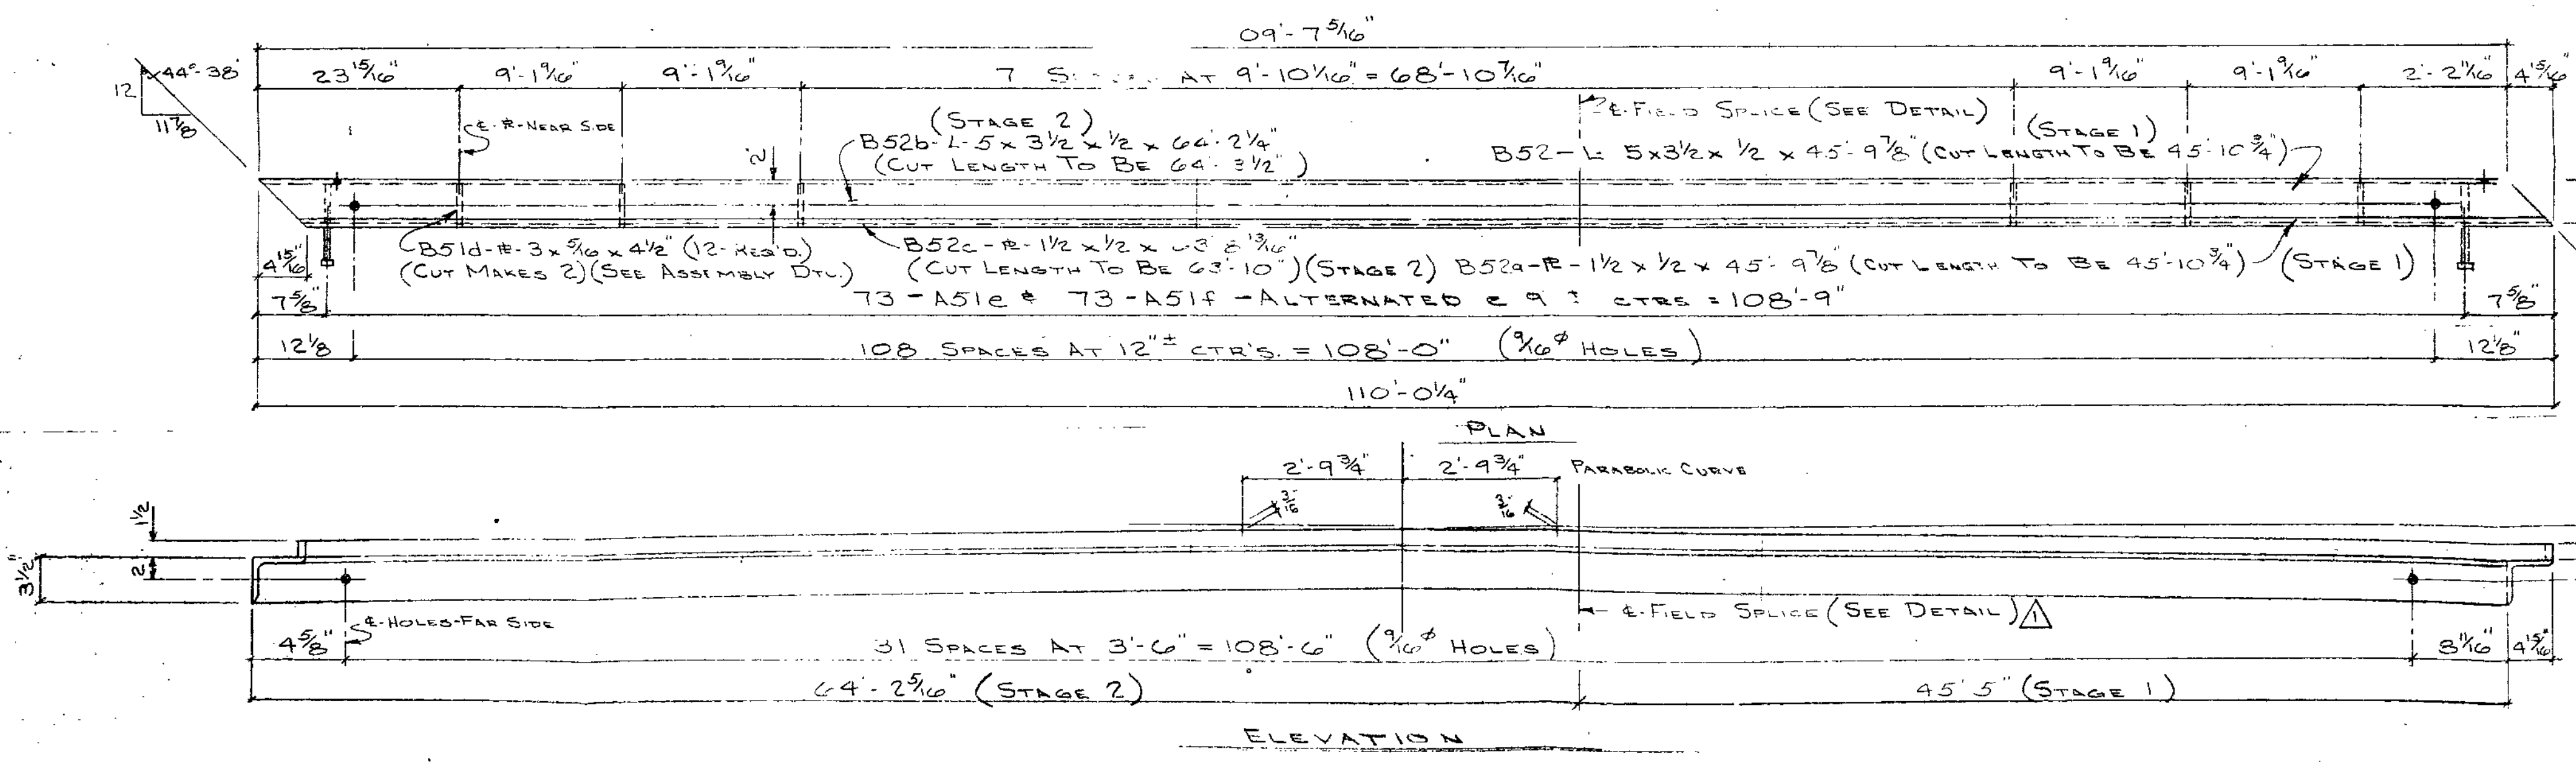 09'-7 5/16"
44°-38'
12
11 7/8
23 15/16"
9'-1 9/16"
9'-1 9/16"
7 AT 9'-10 1/16" = 68'-10 7/16"
9'-1 9/16"
9'-1 9/16"
2'-2 11/16"
4 15/16"
℄-℞-NEAR SIDE
(STAGE 2)
B52b-L-5 x 3 1/2 x 1/2 x 64'-2 1/4"
(CUT LENGTH TO BE 64'-3 1/2")
℄-FIELD SPLICE (SEE DETAIL)
(STAGE 1)
B52-L 5x3 1/2 x 1/2 x 45'-9 7/8" (CUT LENGTH TO BE 45'-10 3/4")
2"
4 15/16"
B51d-℞-3 x 5/16 x 4 1/2" (12-REQ'D.)
(CUT MAKES 2) (SEE ASSEMBLY DTL.)
B52c-℞-1 1/2 x 1/2 x 13/16"
(CUT LENGTH TO BE 63'-10") (STAGE 2)
B52a-℞-1 1/2 x 1/2 x 45'-9 7/8" (CUT LENGTH TO BE 45'-10 3/4")
(STAGE 1)
7 5/8"
73-A51e & 73-A51f-ALTERNATED @ 9 ± CTRS = 108'-9"
7 5/8"
12 1/8
108 SPACES AT 12"± CTR'S. = 108'-0" (9/16 ø HOLES)
12 1/8"
110'-0 1/4"
PLAN
2'-9 3/4"
2'-9 3/4"
PARABOLIC CURVE
3/16
3/16
1 1/2
3 1/2"
2
℄-HOLES-FAR SIDE
℄-FIELD SPLICE (SEE DETAIL) 1
4 5/8"
31 SPACES AT 3'-6" = 108'-6" (9/16 ø HOLES)
8 11/16"
4 15/16"
64'-2 5/16" (STAGE 2)
45'5" (STAGE 1)
ELEVATION